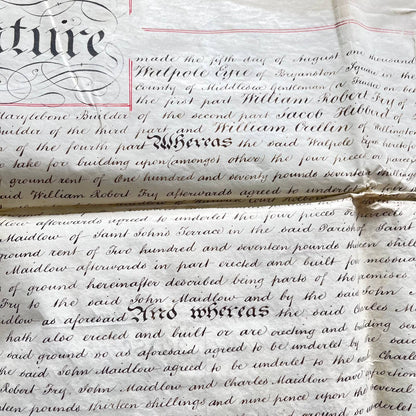 ture
made the fifth day of August one thousand
Walpole Eyre of Bryanston Square in the
County of Middlesex Gentleman (a Trustee on be
the first part William Robert Fry of
Marylebone Builder of the second part Jacob Hibbard of
Builder of the third part and William Catlin of
of the fourth part Whereas the said Walpole Eyre
to take for building upon (amongst other the four pieces or parcels
ground rent of One hundred and seventy pounds seventeen shillings
said William Robert Fry afterwards agreed to underlet to
afterwards agreed to underlet the four pieces
Maidlow of Saint Johns Terrace in the said Parish of Saint
Ground rent of Two hundred and seventeen pounds thirteen shillings
Maidlow afterwards in part erected and built for
of ground hereinafter described being parts of the premises
Fry to the said John Maidlow and by the said John
Maidlow as aforesaid And whereas the said Charles
hath also erected and built or are erecting and building
said ground so as aforesaid agreed to be underlet
the said John Maidlow agreed to be underlet to the said
Robert Fry, John Maidlow and Charles Maidlow have
pounds thirteen shillings and nine pence upon the several